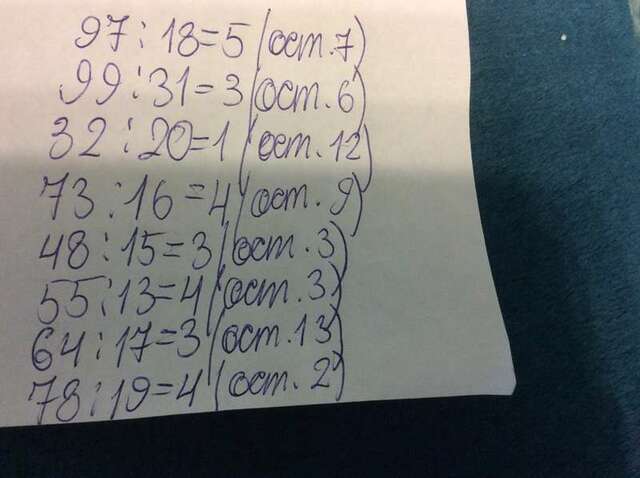 97:18=5(ост.7)
99:31=3(ост.6)
32:20=1(ост.12)
73:16=4(ост.9)
48:15=3(ост.3)
55:13=4(ост.3)
64:17=3(ост.13)
78:19=4(ост.2)